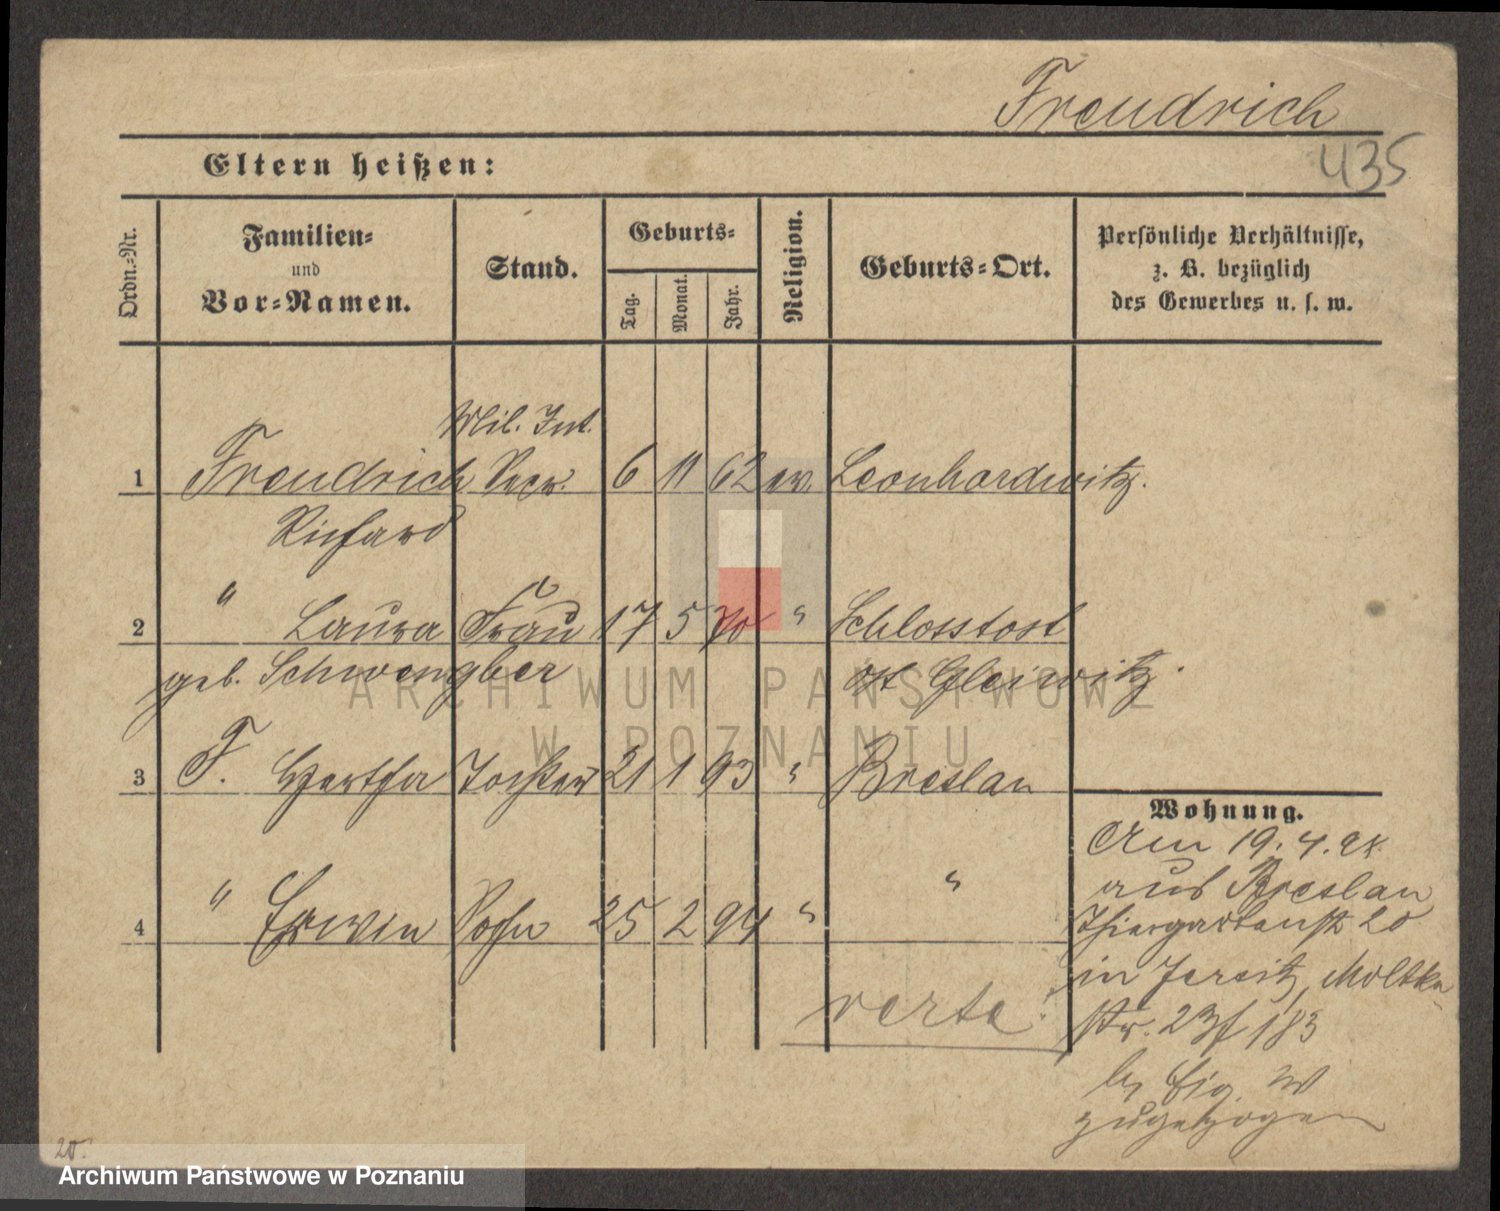 Freudrich
435
Eltern heißen:
Ordn.-Nr.
Familien-
und
Vor-Namen.
Stand.
Geburts-
Tag.
Monat.
Jahr.
Religion.
Geburts-Ort.
Persönliche Verhältnisse,
z. B. bezüglich
des Gewerbes u. s. w.
Mil. Int.
1 Freudrich Secr. 6 11 62 ev. Leonhardwitz.
Richard
2 " Laura Frau 17 5 70 " Schlosstost
geb. Schwengber Gleiwitz.
3 F. Hertha Tochter 21 1 93 " Breslau
4 " Erwin Sohn 25 2 94 " "
verte!
Wohnung.
Am 19. 4.
aus Breslau
Thiergartenstr 20
in Jersitz, Moltke-
str.
Eig. W
zugezogen
20.
ARCHIWUM PAŃSTWOWE
W POZNANIU
Archiwum Państwowe w Poznaniu